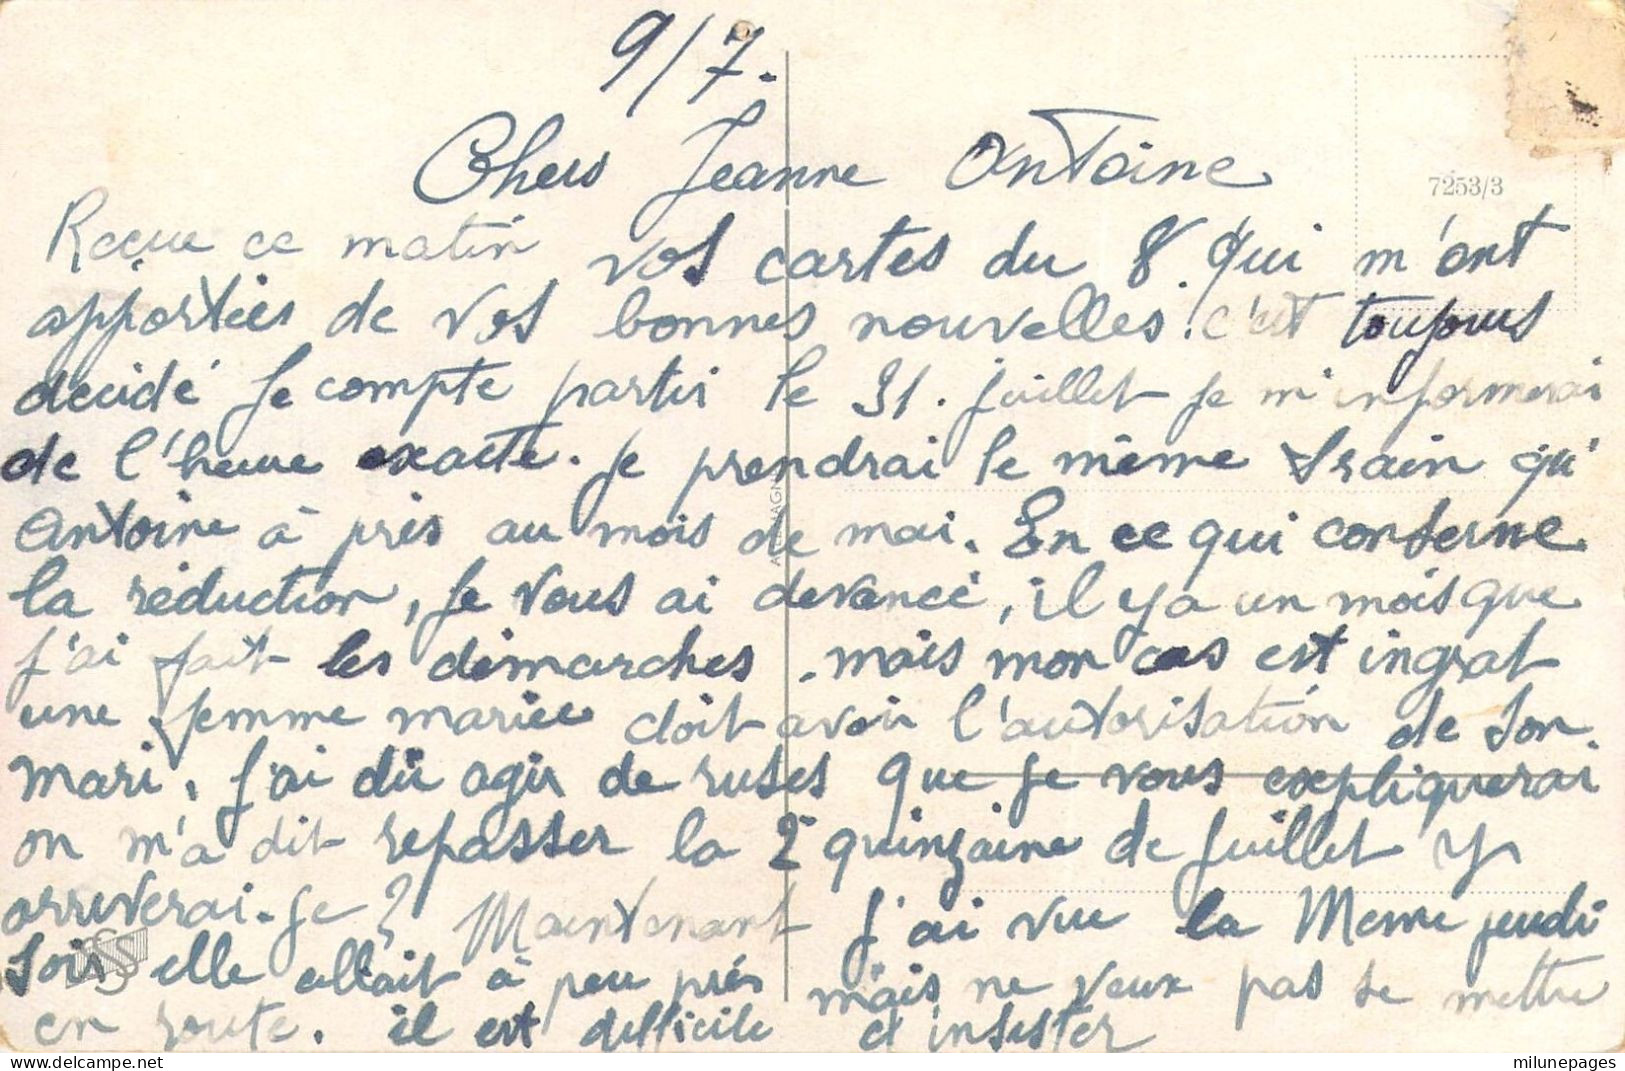 9/7.
Chers Jeanne Antoine
7253/3
Reçue ce matin vos cartes du 8. qui m'ont
apportées de vos bonnes nouvelles. c'est toujours
decidé je compte partir le 31. juillet je m'informerai
de l'heure exacte. je prendrai le même train qu'
Antoine à pris au mois de mai. En ce qui conserne
la réduction, je vous ai devancé, il y a un mois que
j'ai fait les démarches. mais mon cas est ingrat
une femme mariée doit avoir l'autorisation de son
mari, j'ai dû agir de ruses que je vous expliquerai.
on m'a dit repasser la 2e quinzaine de juillet y
arriverai-je? Maintenant j'ai vue la Meme jeudi
soir elle allait à peu près mais ne veux pas se mettre
en route. il est difficile d'insister
milunepages